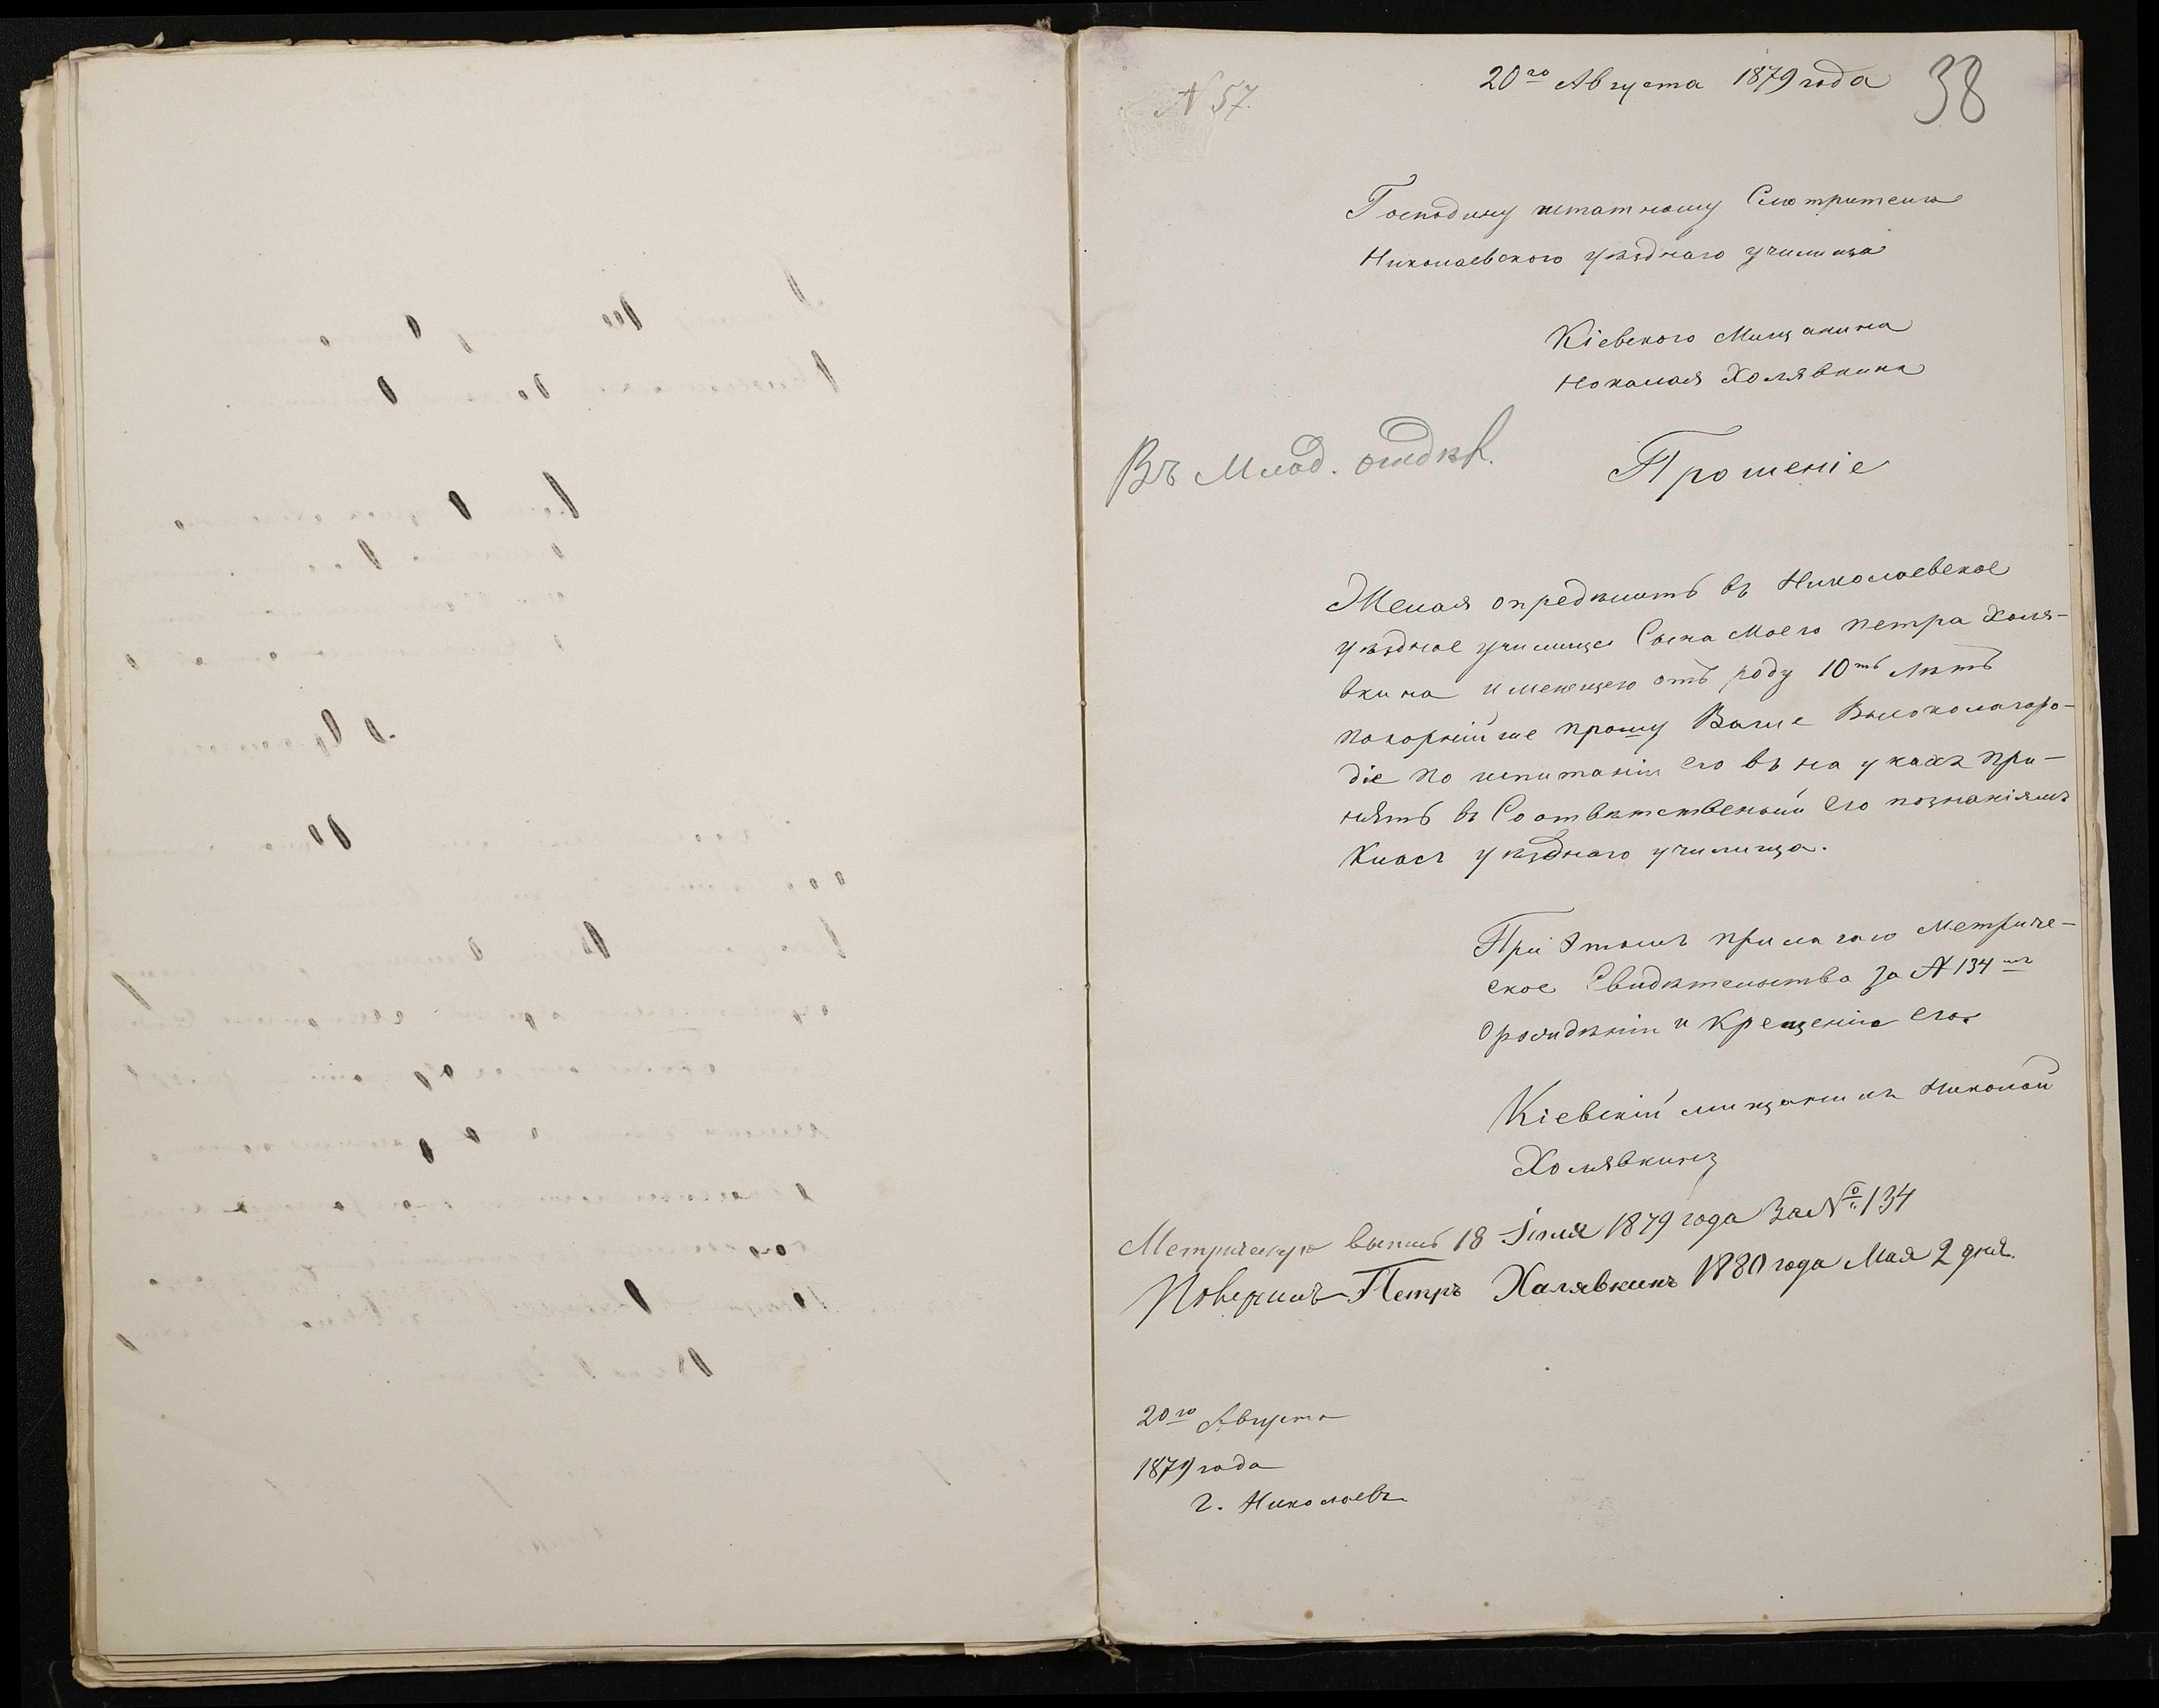 N 57.
20го Августа 1879 года
38
Господину штатному Смотрителю
Николаевского уѣзднаго училища
Кіевского Мищанина
Николая Холявкина
Въ Млад. отдѣл.
Прошеніе
Желая опредѣлить въ Николаевское
уѣздное училище Сына Моего Петра Холя-
вкина имеющего отъ роду 10ть лѣтъ
покорнійше прошу Ваше Высокоблагоро-
діе по испитаніи его въ наукахъ при-
нять въ Соотвѣтственный его познаніямъ
Класъ уѣзднаго училища.
При Этомъ прилагаю Метриче-
ское Свидѣтельство за № 134мъ
О рождѣніи и Крещеніи его.
Кіевскій мищанинъ Николай
Холявкинъ
Метрическую выпись 18 Іюля 1879 года За № 134
Получилъ Петръ Халявкинъ 1880 года Мая 2 дня.
20го Августа
1879 года
г. Николаевъ